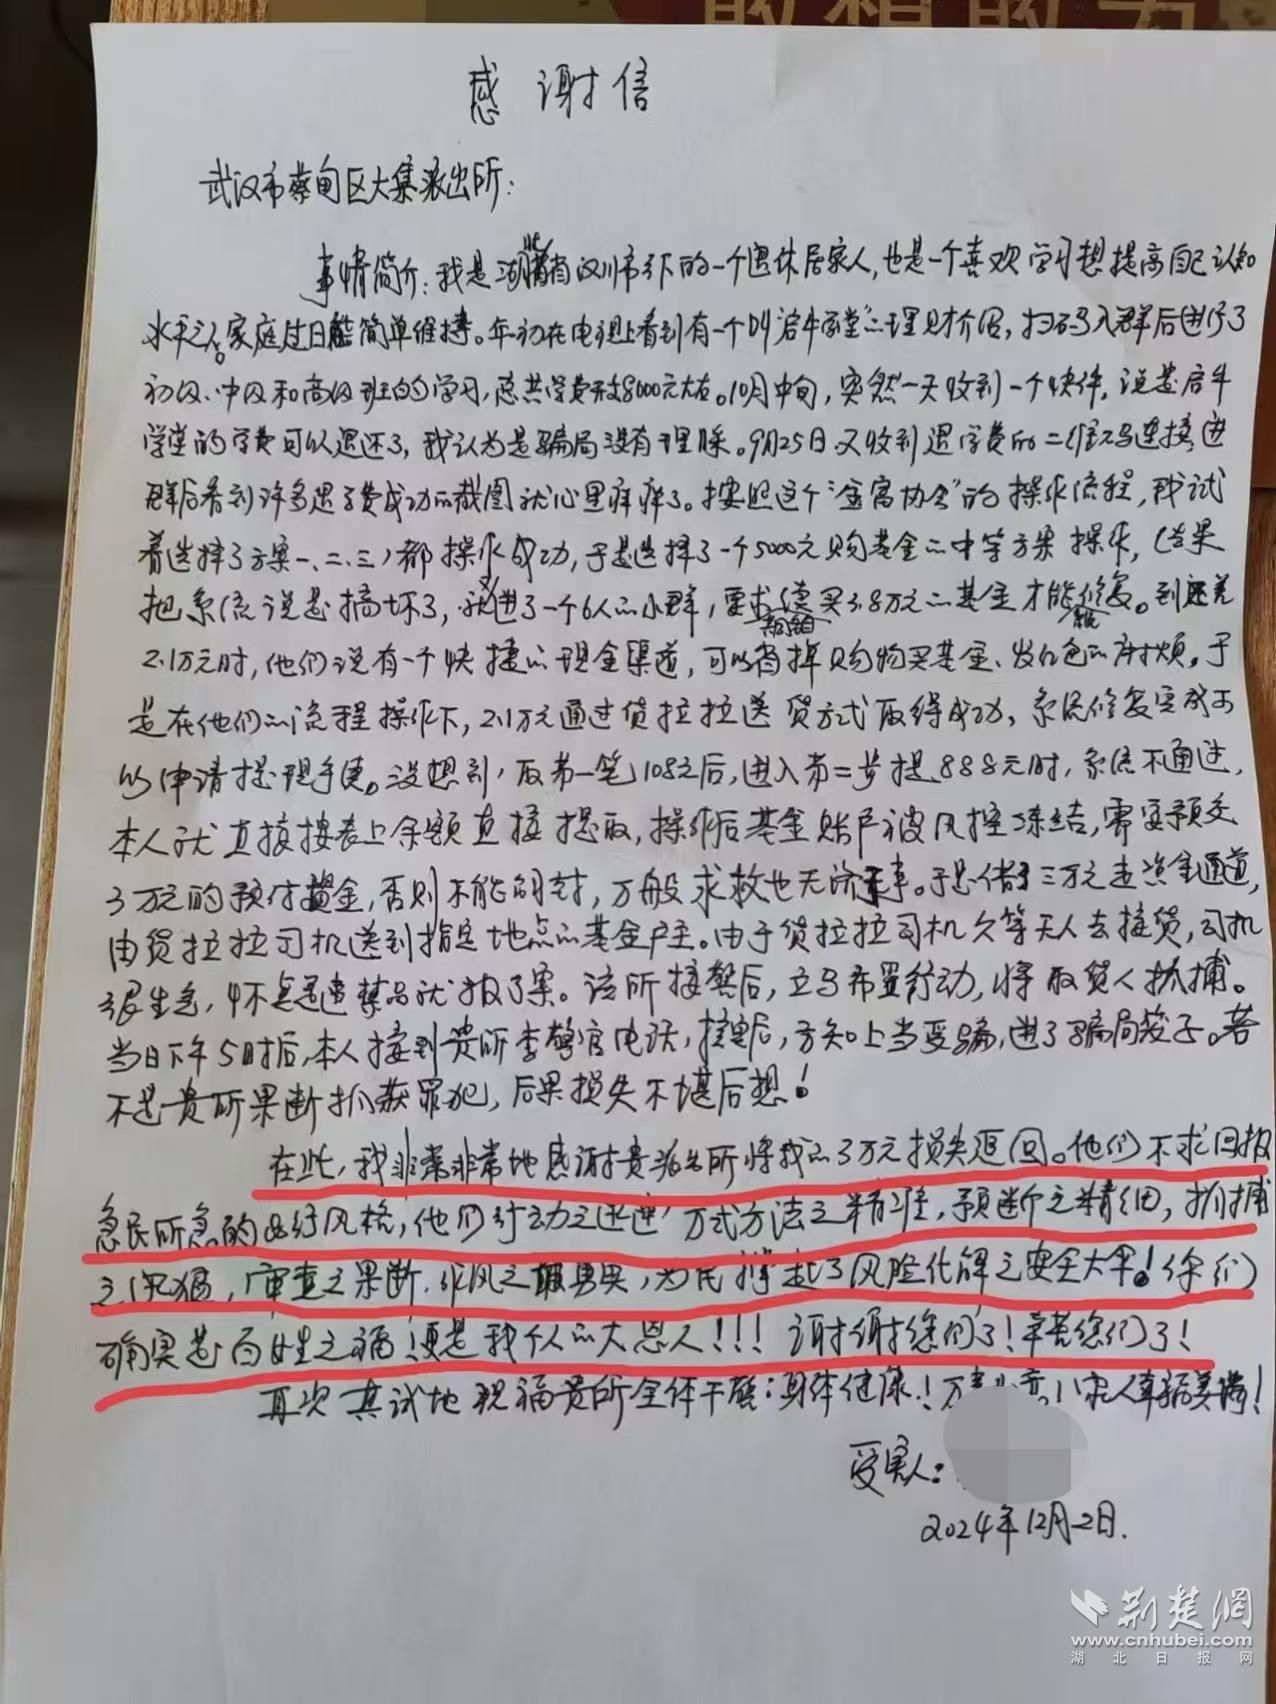 敢想敢为
感谢信
武汉市蔡甸区大集派出所:
事情简介:我是湖北省汉川市下的一个退休居家人,也是一个喜欢学习想提高自己认知
水平之人。家庭过日能简单维持。年初在电视上看到有一个叫启牛学堂的理财介绍,扫码入群后进行了
初级、中级和高级班的学习,总共学费8000元左右。10月中旬,突然一天收到一个快件,说是启牛
学堂的学费可以退还了,我认为是骗局没有理睬。9月25日又收到退学费的二维码连接,进
群后看到许多退学费成功的截图就心里痒痒了。按照这个"金富协会"的操作流程,我试
着选择了方案一、二、三,都操作成功,于是选择了一个5000元购基金的中等方案操作,结果
把系统说是搞坏了,又进了一个6人的小群,要求购买3.8万元的基金才能修复。到还差
2.1万元时,他们说有一个快捷的现金渠道,可以省掉购物买基金、发红包的麻烦。于
是在他们的流程操作下,2.1万元通过货拉拉送货方式取得成功,系统修复完成可
以申请提现手续。没想到,取第一笔108元后,进入第二步提888元时,系统不通过,
本人就直接按表上余额直接提取,操作后基金账户被风控冻结,需要预交
3万元的预付金,否则不能解封,万般求救也无济于事。于是借了三万元走资金通道,
由货拉拉司机送到指定地点的基金户主。由于货拉拉司机久等无人去接货,司机
很生急,怀疑是违禁品就报了案。该所接警后,立马布置行动,将取货人抓捕。
当日下午5时后,本人接到贵所李警官电话,接电后,方知上当受骗,进了骗局笼子。若
不是贵所果断抓获罪犯,后果损失不堪后想!
在此,我非常非常地感谢贵派出所将我的3万元损失返回。他们不求回报
急民所急的品行风格,他们行动之迅速,方式方法之精准,预断之精细,抓捕
之,审查之果断,作风之,为民撑起了风险化解之安全大伞!你们
确实是百姓之福!更是我个人的大恩人!!!谢谢您们了!辛苦您们了!
再次真诚地祝福贵所全体干警:身体健康!万事人幸福美满!
受害人:
2024年12月2日.
荆楚网
www.cnhubei.com
湖北日报网